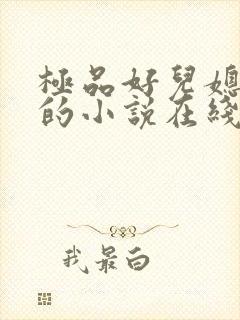 極品好兒媳
的小說在綫
我最白